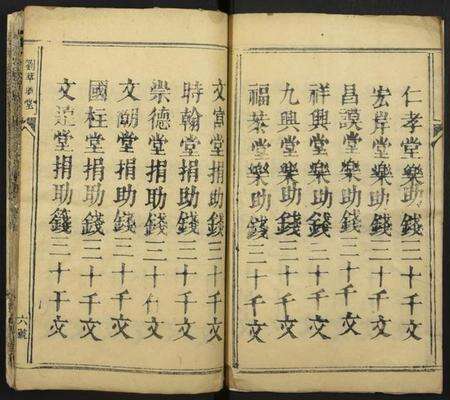 仁孝堂樂助錢二十千文
宏岸堂樂助錢二十千文
昌謨堂樂助錢二十千文
祥興堂樂助錢二十千文
九興堂樂助錢二十千文
福棻堂樂助錢二十千文
文富堂捐助錢二十千文
時翰堂捐助錢二十千文
崇德堂捐助錢二十千文
文朗堂捐助錢二十千文
國柱堂捐助錢二十千文
文誼堂捐助錢二十千文
六號